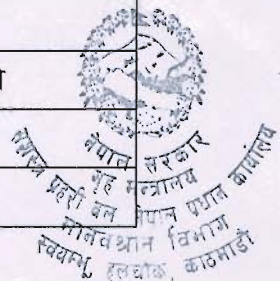 नेपाल सरकार
गृह मन्त्रालय
सशस्त्र प्रहरी बल नेपाल प्रधान कार्यालय
मानवश्रोत विभाग
स्वयम्भू हलचोक, काठमाडौं